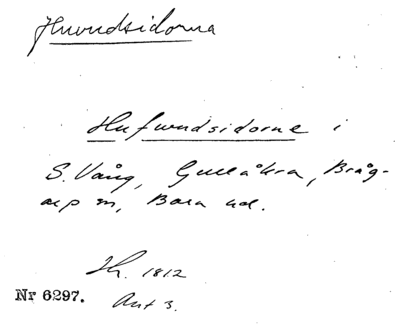 Huvudsidorna
Hufvudsidorne i
S. Vång, Gullåkra, Bråg-
arp m, Bara hd.
Th. 1812
Nr 6297. Ant 3.